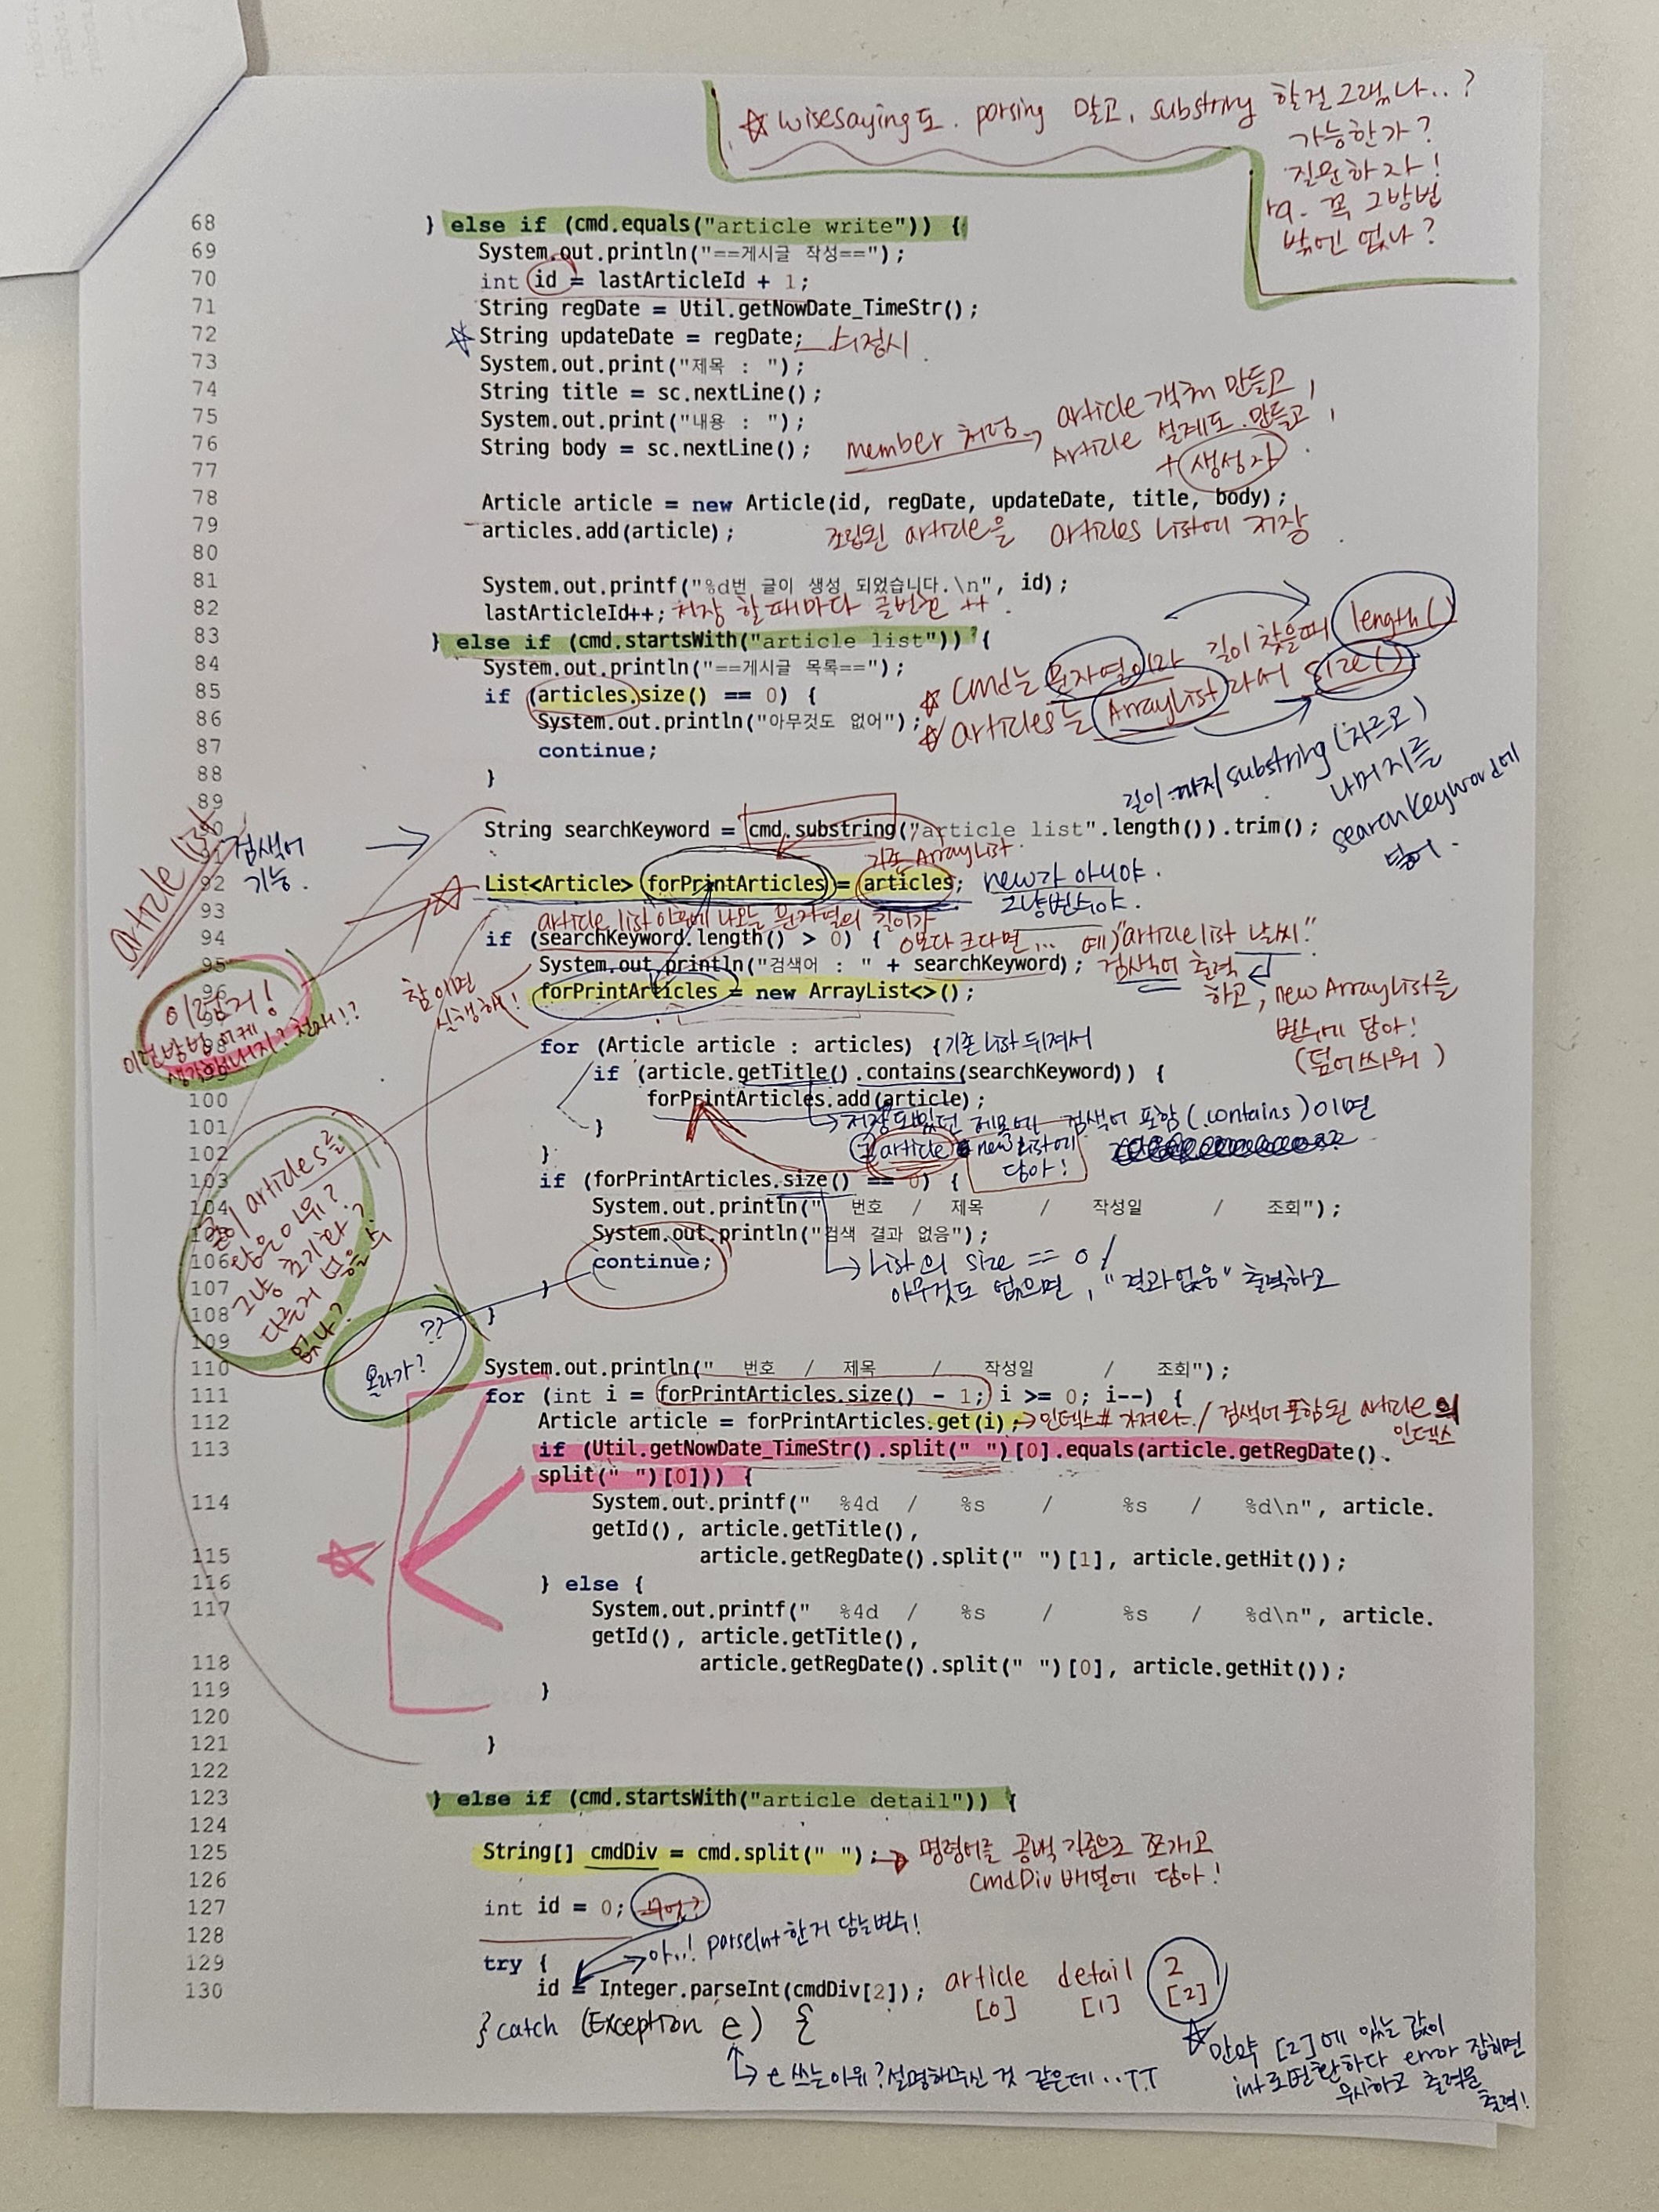 ☆ wisesaying도. parsing 말고, substring 할걸 그랬나..?
가능한가?
질문하자!
rq. 꼭 그방법
밖엔 없나?
68 } else if (cmd.equals("article write")) {
69 System.out.println("==게시글 작성==");
70 int id = lastArticleId + 1;
71 String regDate = Util.getNowDate_TimeStr();
72 ☆ String updateDate = regDate; 수정시
73 System.out.print("제목 : ");
74 String title = sc.nextLine();
75 System.out.print("내용 : ");
76 String body = sc.nextLine();
member 처럼, article 객체 만들고,
Article 설계도 만들고,
+ 생성자
77
78 Article article = new Article(id, regDate, updateDate, title, body);
79 articles.add(article); 조립된 article을 articles list에 저장
80
81 System.out.printf("%d번 글이 생성 되었습니다.\n", id);
82 lastArticleId++; 저장 할때마다 글번호 ++
83 } else if (cmd.startsWith("article list")) {
84 System.out.println("==게시글 목록==");
☆ cmd는 문자열이라 길이 찾을때 length()
85 if (articles.size() == 0) {
☆ articles는 ArrayList라서 size()
86 System.out.println("아무것도 없어");
87 continue;
88 }
89
길이 까지 substring (자르고)
나머지를
searchKeyword에
넣어.
article list
검색어
기능.
90 String searchKeyword = cmd.substring("article list".length()).trim();
91
기존 ArrayList
92 ☆ List<Article> forPrintArticles = articles; new가 아니야.
그냥변수야.
93 article list 이후에 나오는 문자열의 길이가
94 if (searchKeyword.length() > 0) { 0보다 크다면... 예)"article list 날씨"
95 System.out.println("검색어 : " + searchKeyword); 검색어 출력
96 forPrintArticles = new ArrayList<>();
하고, new ArrayList를
변수에 담아!
(덮어씌워)
참이면
실행해!
이런거!
이런방법 어떻게
생각해내지? 천재!?
for (Article article : articles) { 기존 list 뒤져서
if (article.getTitle().contains(searchKeyword)) {
100 forPrintArticles.add(article);
101 }
저장 되있던 제목에 검색어 포함(.contains)이면
그 article new list에
담아!
102 }
103 if (forPrintArticles.size() == 0) {
104 System.out.println(" 번호 / 제목 / 작성일 / 조회");
System.out.println("검색 결과 없음");
106 continue;
list의 size == 0 /
아무것도 없으면, "결과없음" 출력하고
107 }
108 }
109
굳이 articles를
담은 이유?
그냥 초기화?
다른거 넣을 수
없나?
??
올라가?
110 System.out.println(" 번호 / 제목 / 작성일 / 조회");
111 for (int i = forPrintArticles.size() - 1; i >= 0; i--) {
112 Article article = forPrintArticles.get(i); → 인덱스# 가져와. / 검색어 포함된 article의
인덱스
113 if (Util.getNowDate_TimeStr().split(" ")[0].equals(article.getRegDate().
split(" ")[0])) {
114 System.out.printf(" %4d / %s / %s / %d\n", article.
getId(), article.getTitle(),
115 article.getRegDate().split(" ")[1], article.getHit());
116 } else {
117 System.out.printf(" %4d / %s / %s / %d\n", article.
getId(), article.getTitle(),
118 article.getRegDate().split(" ")[0], article.getHit());
119 }
120
121 }
122
123 } else if (cmd.startsWith("article detail")) {
124
125 String[] cmdDiv = cmd.split(" "); → 명령어를 공백 기준으로 쪼개고
cmdDiv 배열에 담아!
126
127 int id = 0;
128
아..! parseInt 한거 담는변수!
129 try {
130 id = Integer.parseInt(cmdDiv[2]);
article detail 2
[0] [1] [2]
} catch (Exception e) {
e 쓰는이유? 설명해주신 것 같은데..TT
☆ 만약 [2]에 있는 값이
int로변환하다 error 잡히면
무시하고 출력문
출력!